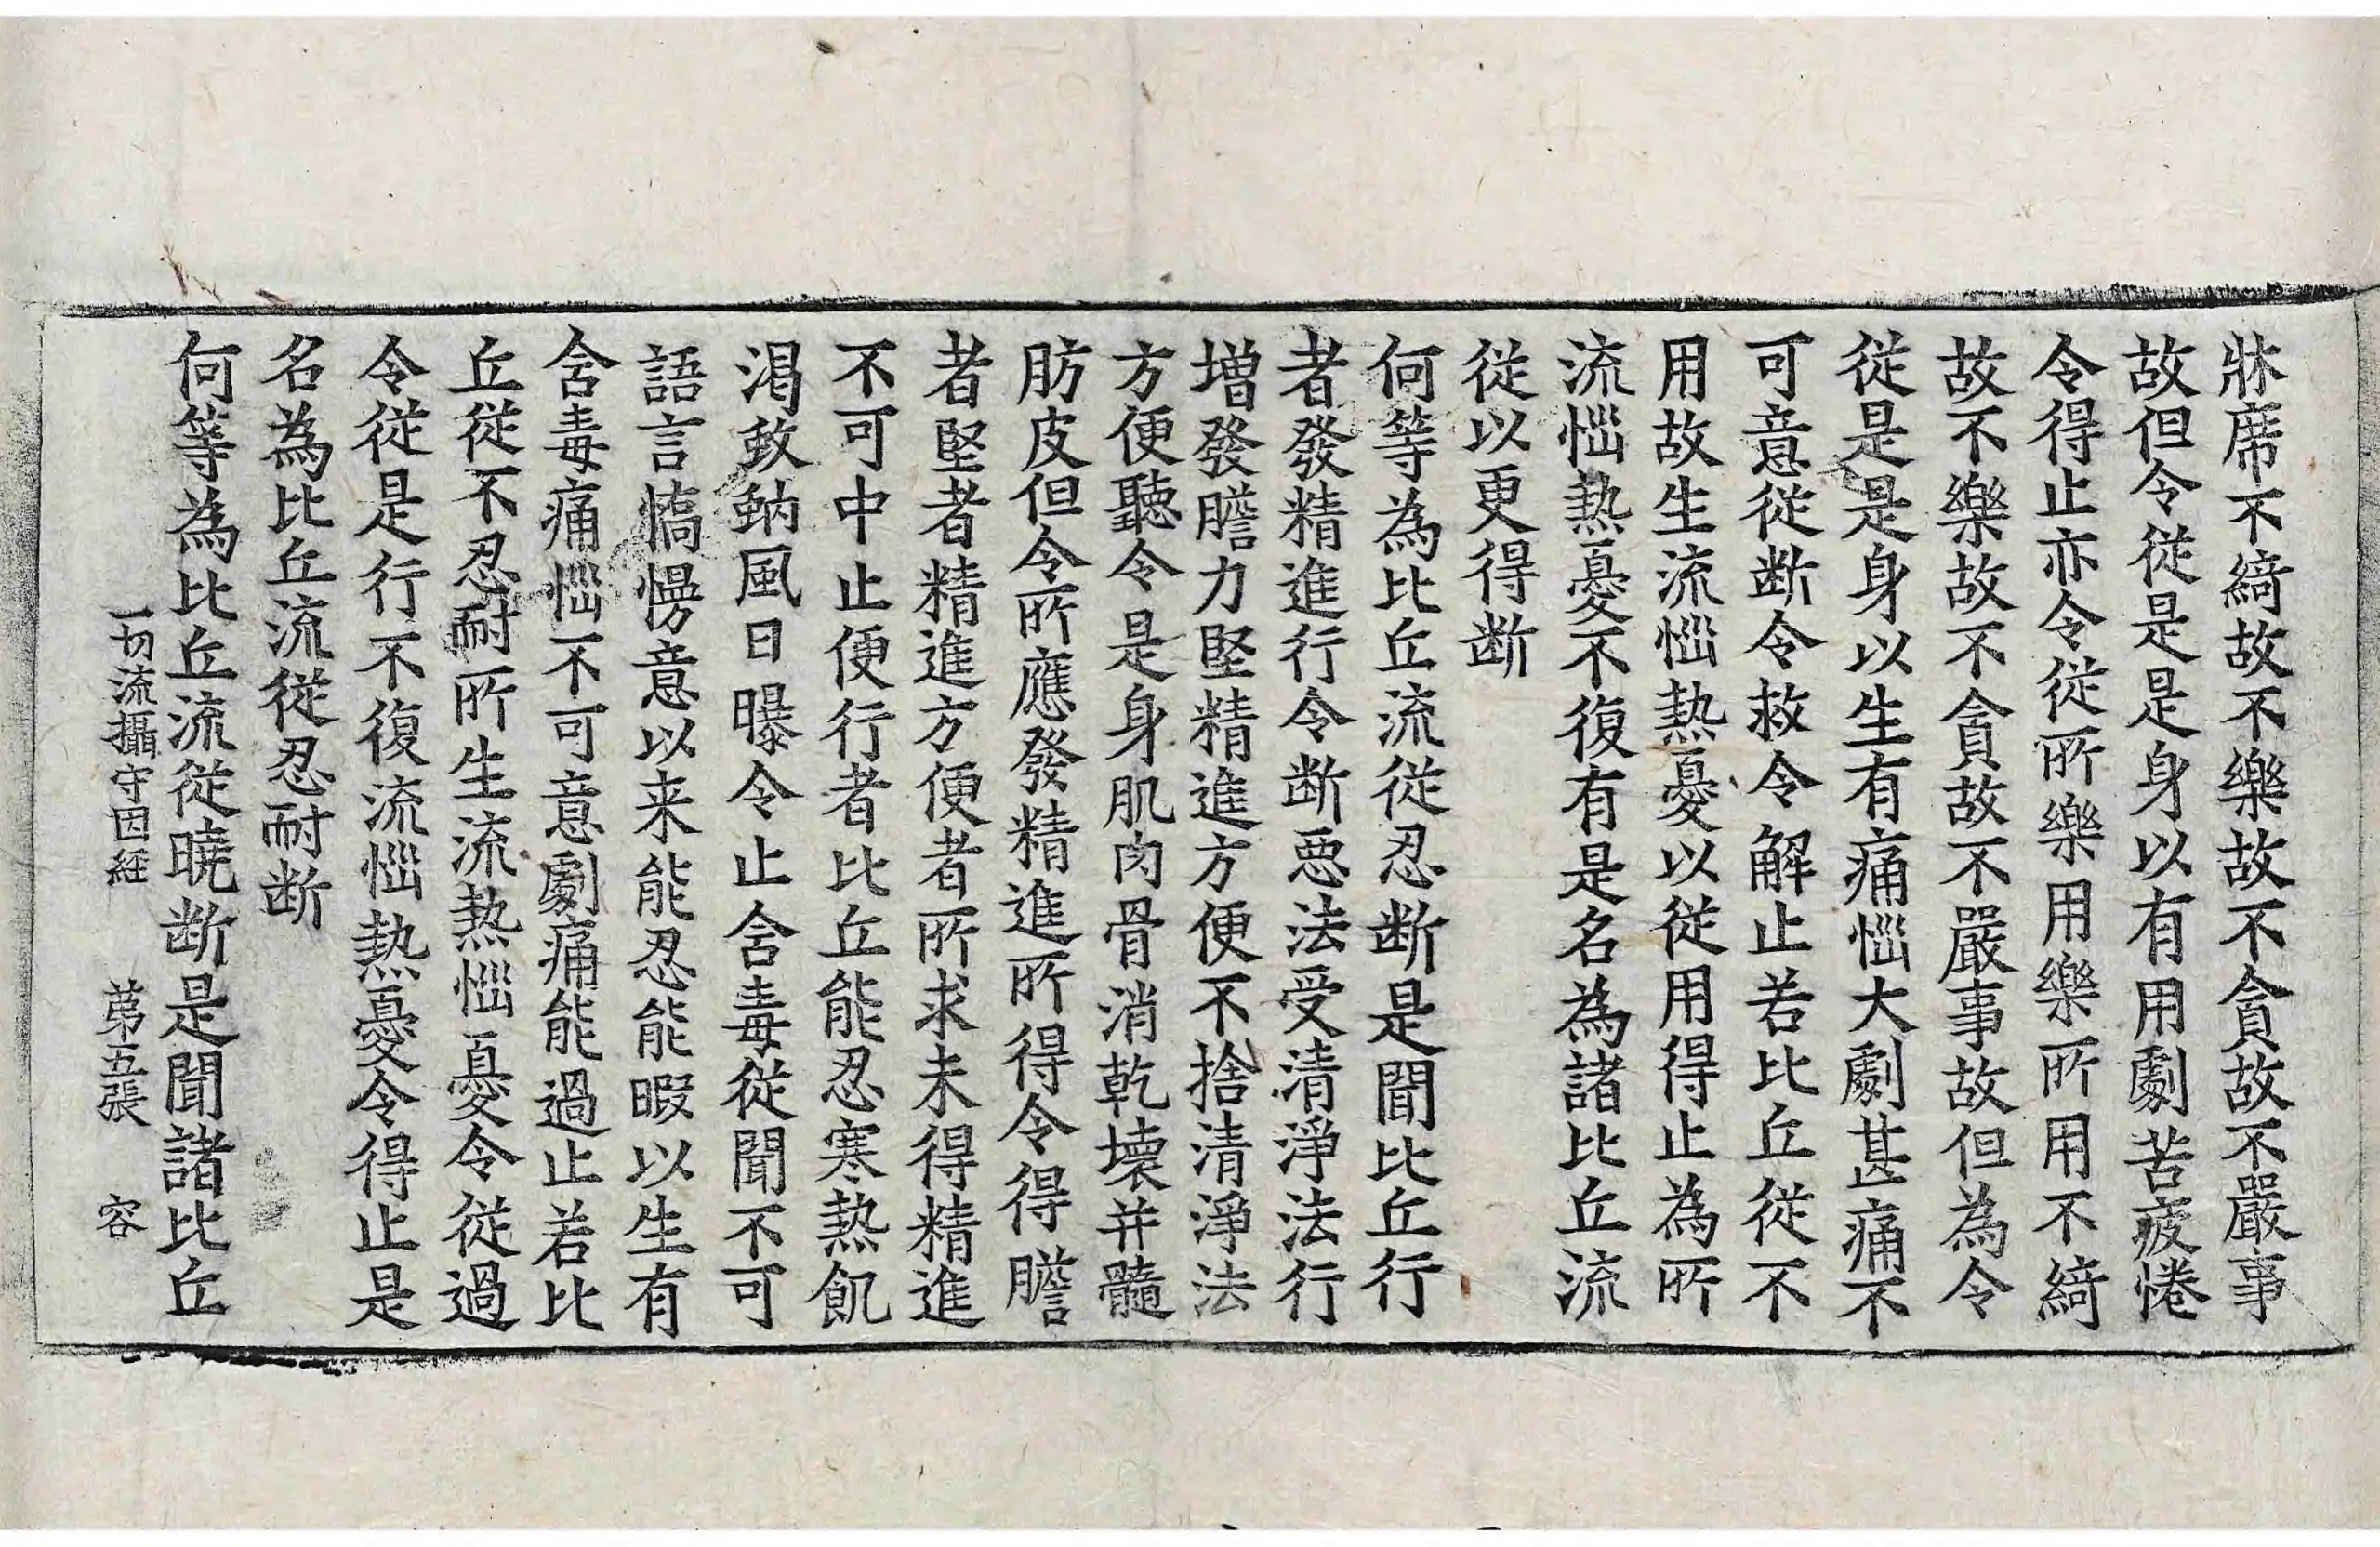 牀席不綺故不樂故不貪故不嚴事
故但令從是是身以有用劇苦疲惓
令得止亦令從所樂用樂所用不綺
故不樂故不貪故不嚴事故但為令
從是是身以生有痛惱大劇甚痛不
可意從断令救令解止若比丘從不
用故生流惱熱憂以從用得止為所
流惱熱憂不復有是名為諸比丘流
從以更得断
何等為比丘流從忍断是聞比丘行
者發精進行令断惡法受清淨法行
增發膽力堅精進方便不捨清淨法
方便聽令是身肌肉骨消乾壞并髓
肪皮但令所應發精進所得令得膽
者堅者精進方便者所求未得精進
不可中止便行者比丘能忍寒熱飢
渴蚊蚋風日曝令止含毒從聞不可
語言憍慢意以来能忍能暇以生有
含毒痛惱不可意劇痛能過止若比
丘從不忍耐所生流熱惱憂令從過
令從是行不復流惱熱憂令得止是
名為比丘流從忍耐断
何等為比丘流從曉断是聞諸比丘
一切流攝守因經 苐五張 容